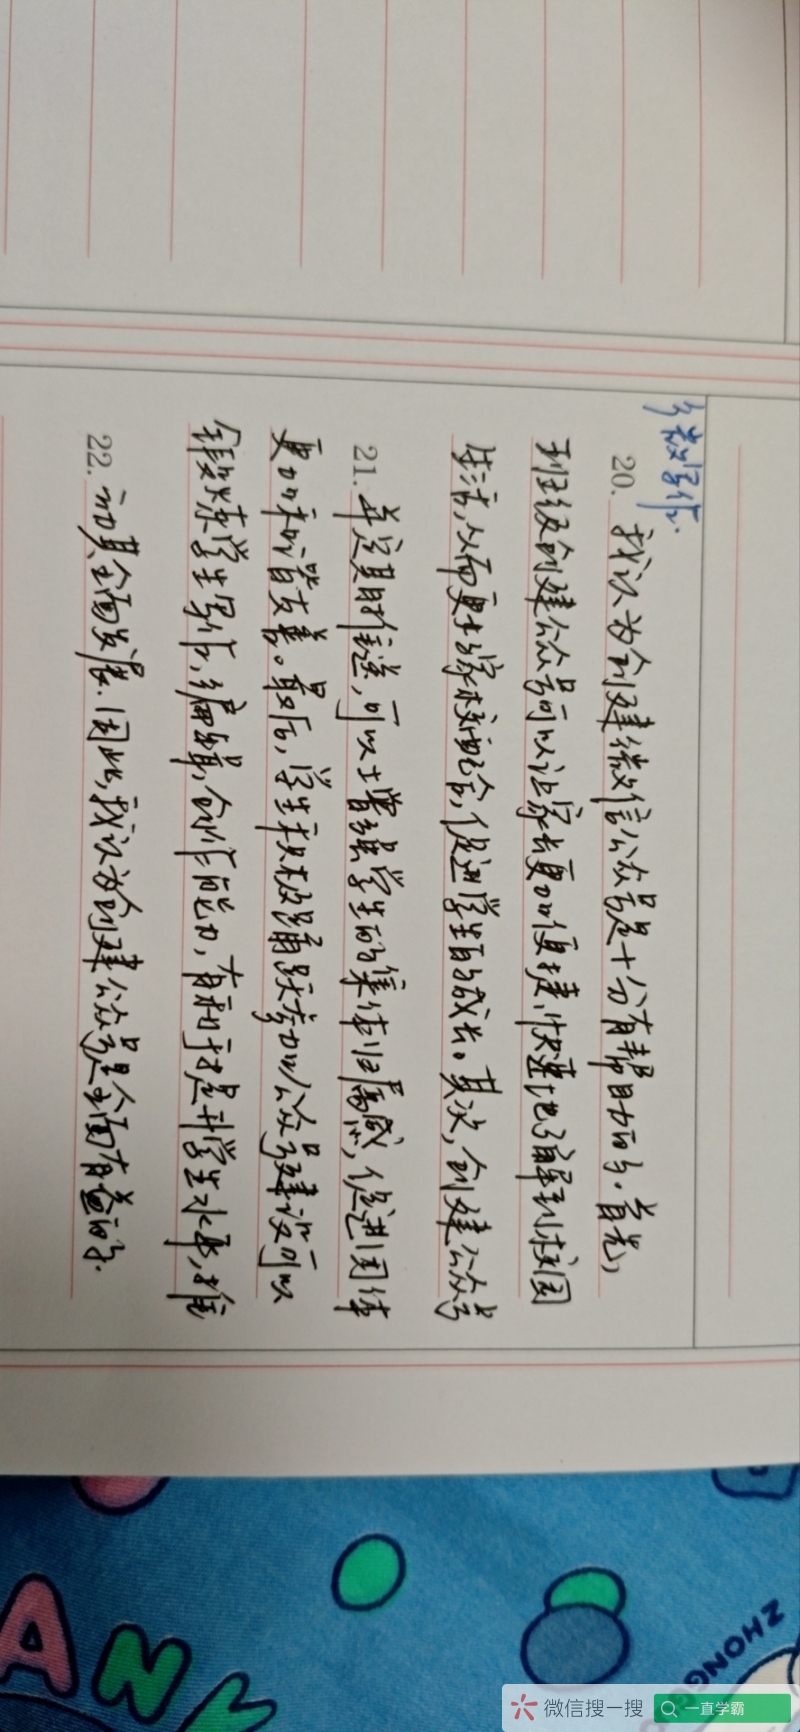 微写作.
20. 我认为创建微信公众号是十分有帮助的.首先,
班级创建公众号可以让家长更加便捷、快速地了解到校园
生活,从而更好家校配合,促进学生的成长。其次,创建公众号
21. 并定期推送,可以增强学生的集体归属感,促进团体
更加和谐友善。最后,学生积极踊跃参加公众号建设可以
锻炼学生写作,编辑,创作能力,有利于提升学生水平,推
22. 动其全面发展.因此,我认为创建公众号是全面有益的.
ANY
ZHONG
微信搜一搜
一直学霸